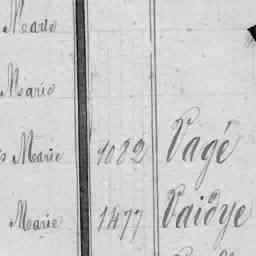 Marie
Marie
s Marie 1082 Pagé
Marie 1477 Paidye